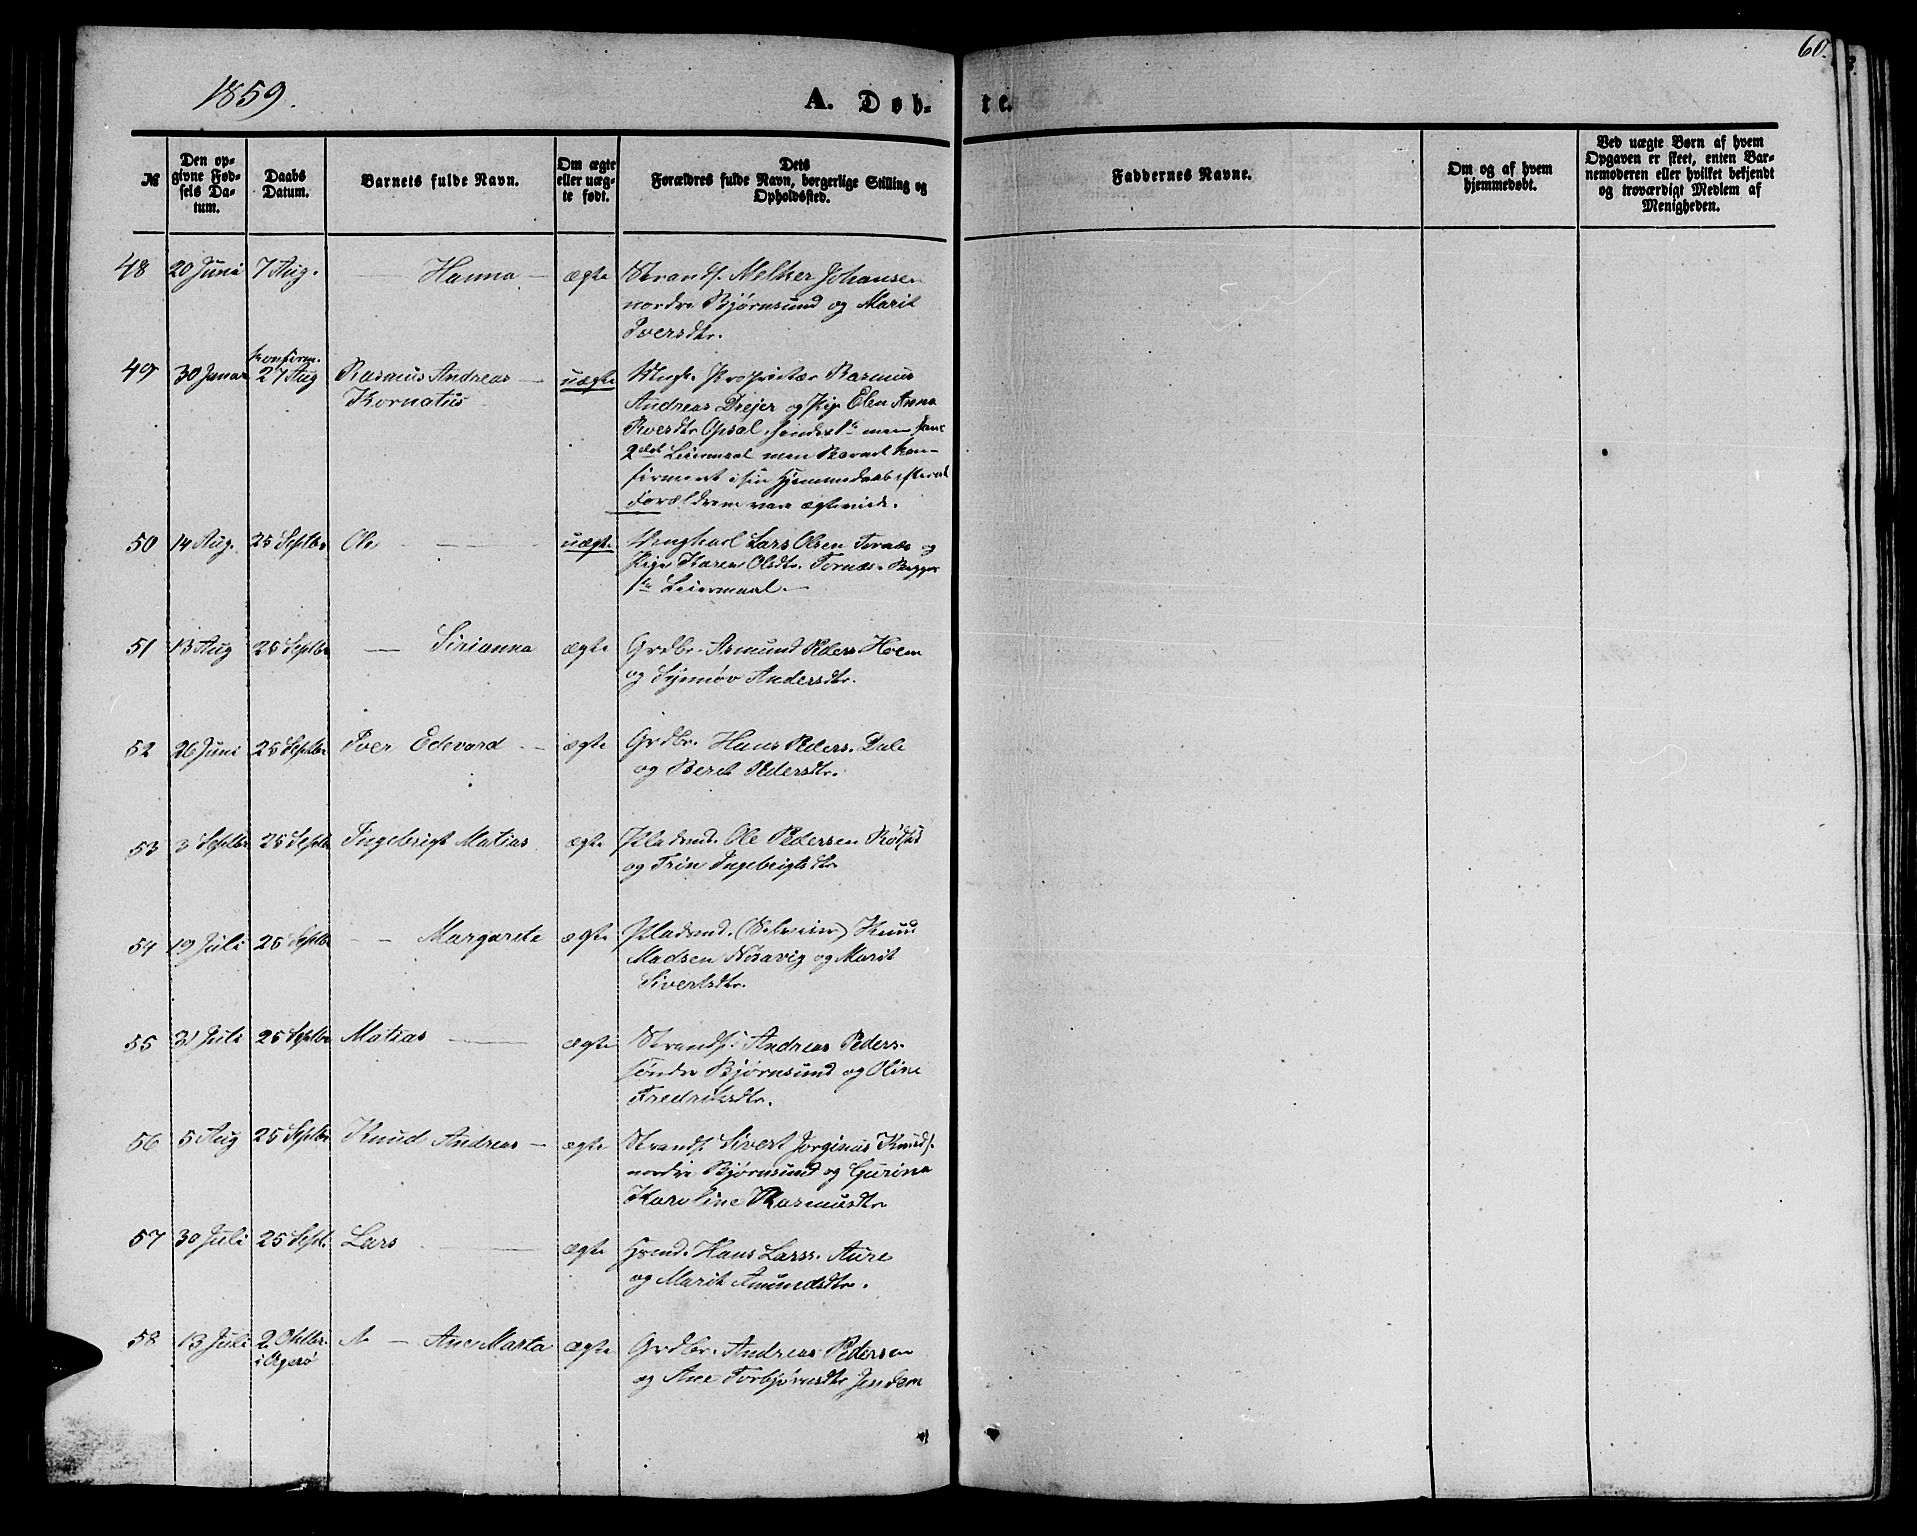 1859.
A. Døb-
te.
60.
№
Den op-
givne Fød-
sels Da-
tum.
Daabs
Datum.
Barnets fulde Navn.
Om ægte
eller uæg-
te født.
Dets
Forældres fulde Navn, borgerlige Stilling og
Opholdssted.
Faddernes Navne.
Om og af hvem
hjemmedøbt.
Ved uægte Børn af hvem
Opgaven er skeet, enten Bar-
nemoderen eller hvilket bekjendt
og troværdigt Medlem af
Menigheden.
48 20 Juni 7 Aug. — Hanna — ægte Strands. Melker Johansen
nordre Bjørnsund og Marit
Iversdtr.
konfirm.
49 30 Januar 27 Aug Rasmus Andreas — uægte Ungk. Proprietær Rasmus
Kornatus Andreas Drejer og Pige Elen Anna
Iversdtr Opsal, hendes 1te men hans
2det Leiermaal men Barnet kon-
firmert i sin Hjemmedaab efterat
Forældrene vare ægteviede.
50 14 Aug. 25 Septbr Ole — uægte Ungkarl Lars Olsen Tornæs og
Pige Karen Olsdtr. Tornæs - Begges
1te Leiermaal. —
51 13 Aug 25 Septbr — Sirianna ægte Grdbr. Asmund Peders. Hoem
og Synnøv Andersdtr.
52 26 Juni 25 Septbr Iver Edevard — ægte Grdbr. Hans Peders. Dale
og Beret Pedersdtr.
53 3 Septbr 25 Septbr Ingebrigt Matias ægte Pladsmd. Ole Pedersen
og Trin Ingebrigtsdtr
54 19 Juli 25 Septbr — Margarete ægte Pladsmd. Knud
Madsen og Marit
Sivertsdtr.
55 31 Juli 25 Septbr Matias — ægte Strands. Andreas Peders.
søndre Bjørnsund og Oline
Fredriksdtr.
56 5 Aug 25 Septbr Knud Andreas — ægte Strands. Sivert Jorginus Knuds.
nordre Bjørnsund og Gurina
Karoline Rasmusdtr
57 30 Juli 25 Sept. Lars — ægte Hans Larss. Aure
og Marit Amundsdtr.
58 13 Juli 2 Oktbr. — Ane Marta ægte Grdbr. Andreas Pedersen
i Agerø og Ane Torbjørnsdtr Jendem